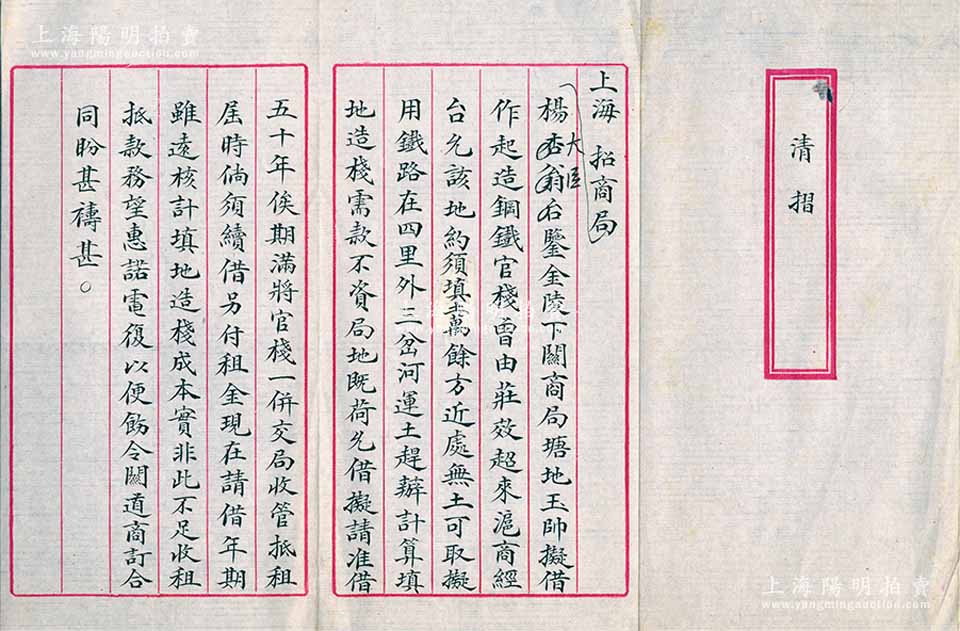 清摺
上海 招商局
楊杏翁右鑒金陵下關商局塘地玉帥擬借
大臣
作起造鋼鐵官棧曾由莊效超來滬商經
台允該地約須填土萬餘方近處無土可取擬
用鐵路在四里外三岔河運土趕辦計算填
地造棧需款不資局地既荷允借擬請准借
五十年俟期滿將官棧一併交局收管抵租
屆時倘須續借另付租金現在請借年期
雖遠核計填地造棧成本實非此不足收租
抵款務望惠諾電復以便飭令關道商訂合
同盼甚禱甚。
上海陽明拍賣
www.yangmingauction.com
上海陽明拍賣
www.yangmingauction.com